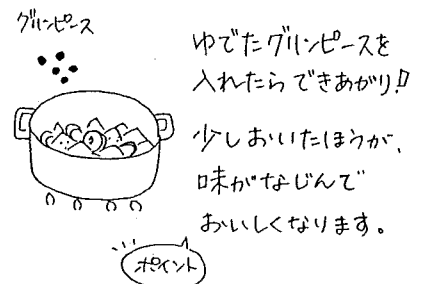 グリンピース
ゆでたグリンピースを
入れたら できあがり!!
少しおいたほうが、
味がなじんで
おいしくなります。
ポイント